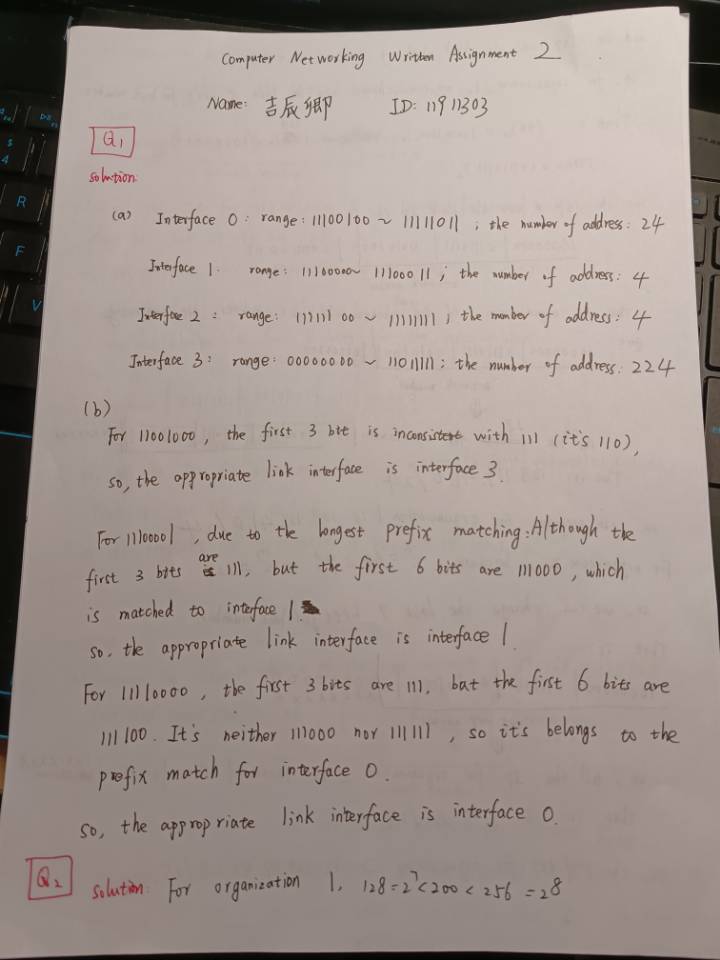 Computer Networking Written Assignment 2
Name: 吉辰卿 ID: 11911303
Q1
solution:
(a) Interface 0: range: 11100100 ~ 11111011 ; the number of address: 24
Interface 1. range: 11100000~ 11100011 ; the number of address: 4
Interface 2 : range: 11111100 ~ 11111111 ; the number of address: 4
Interface 3: range: 00000000 ~ 11011111; the number of address: 224
(b)
For 11001000, the first 3 bit is inconsistent with 111 (it's 110),
so, the appropriate link interface is interface 3.
For 11100001, due to the longest prefix matching: Although the
first 3 bits are 111, but the first 6 bits are 111000, which
is matched to interface 1.
so, the appropriate link interface is interface 1.
For 11110000, the first 3 bits are 111, but the first 6 bits are
111100. It's neither 111000 nor 111111, so it's belongs to the
prefix match for interface 0.
so, the appropriate link interface is interface 0.
Q2 solution: For organization 1, 128=2^7<200<256=2^8